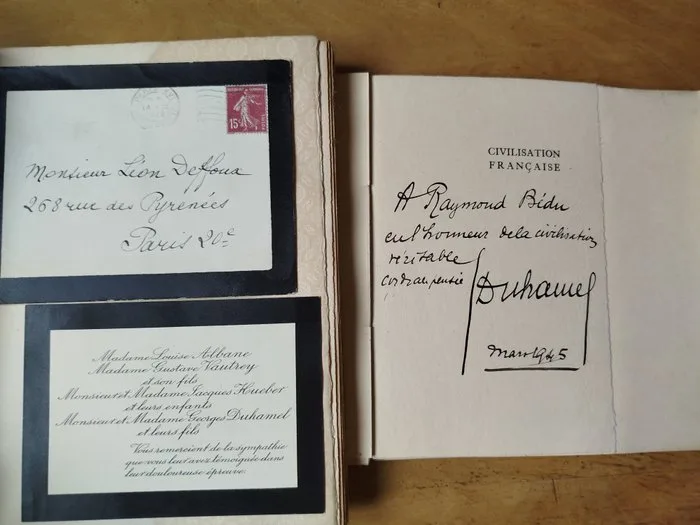 15c
Monsieur Léon Deffoux
268 rue des Pyrénées
Paris 20e
Madame Louise Albane
Madame Gustave Vautrey
et son fils
Monsieur et Madame Jacques Hueber
et leurs enfants
Monsieur et Madame Georges Duhamel
et leurs fils
Vous remercient de la sympathie
que vous leur avez témoignée dans
leur douloureuse épreuve.
CIVILISATION
FRANÇAISE
A Raymond Bédu
en l'honneur de la civilisation
véritable
cordiale pensée
Duhamel
Mars 1945